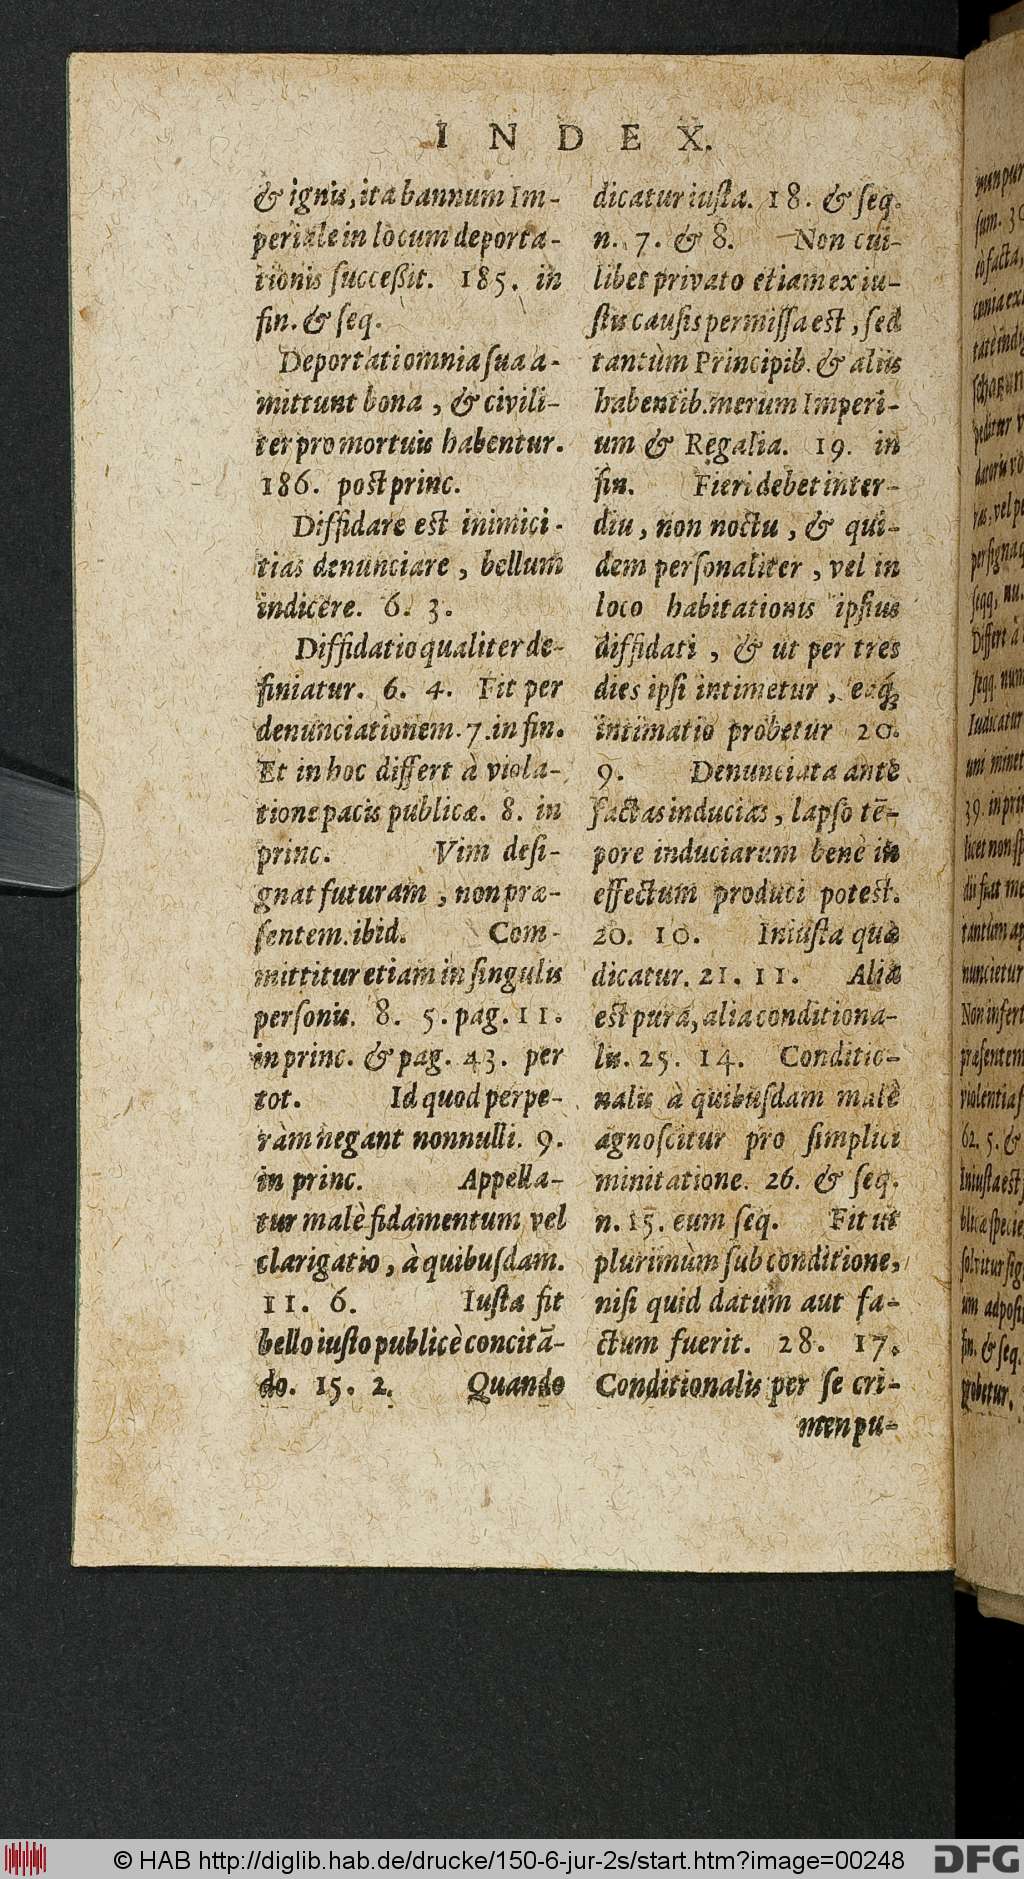 INDEX.
& ignis, ita bannum Im-
periale in locum deporta-
tionis succeßit. 185. in
fin. & seq.
Deportati omnia sua a-
mittunt bona, & civili-
ter pro mortuis habentur.
186. post princ.
Diffidare est inimici-
tias denunciare, bellum
indicere. 6. 3.
Diffidatio qualiter de-
finiatur. 6. 4. Fit per
denunciationem. 7. in fin.
Et in hoc differt à viola-
tione pacis publicæ. 8. in
princ. Vim desi-
gnat futuram, non præ-
sentem. ibid. Com-
mittitur etiam in singulis
personis. 8. 5. pag. 11.
in princ. & pag. 43. per
tot. Id quod perpe-
ràm negant nonnulli. 9.
in princ. Appella-
tur malè fidamentum vel
clarigatio, à quibusdam.
11. 6. Iusta fit
bello iusto publicè concitā-
do. 15. 2. Quando
dicatur iusta. 18. & seq.
n. 7. & 8. Non cui-
libet privato etiam ex iu-
stis causis permissa est, sed
tantùm Principib. & aliis
habentib. merum Imperi-
um & Regalia. 19. in
fin. Fieri debet inter-
diu, non noctu, & qui-
dem personaliter, vel in
loco habitationis ipsius
diffidati, & ut per tres
dies ipsi intimetur, eaq́;
intimatio probetur 20.
9. Denunciata ante
factas inducias, lapso tē-
pore induciarum benè in
effectum produci potest.
20. 10. Iniusta quæ
dicatur. 21. 11. Alia
est pura, alia conditiona-
lis. 25. 14. Conditio-
nalis à quibusdam malè
agnoscitur pro simplici
minitatione. 26. & seq.
n. 15. eum seq. Fit ut
plurimùm sub conditione,
nisi quid datum aut fa-
ctum fuerit. 28. 17.
Conditionalis per se cri-
men pu-
© HAB http://diglib.hab.de/drucke/150-6-jur-2s/start.htm?image=00248
DFG